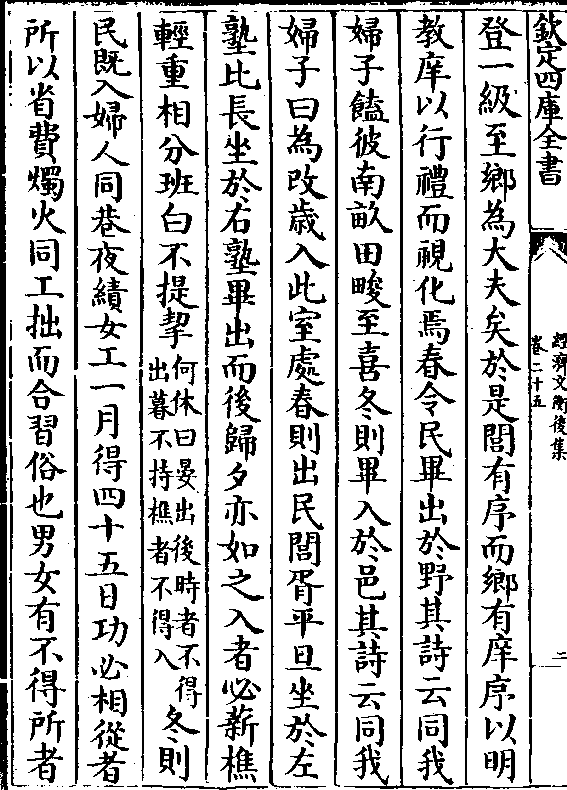 欽定四庫全書
經濟文衡後集
卷二十五
二
登一級至鄉為大夫矣於是閭有序而鄉有庠序以明
教庠以行禮而視化焉春令民畢出於野其詩云同我
婦子饁彼南畝田畯至喜冬則畢入於邑其詩云同我
婦子曰為改歲入此室處春則出民閭胥平旦坐於左
塾比長坐於右塾畢出而後歸夕亦如之入者必薪樵
輕重相分班白不提挈何休曰晏出後時者不得出暮不持樵者不得入冬則
民既入婦人同巷夜績女工一月得四十五日功必相從者
所以省費燭火同工拙而合習俗也男女有不得所者